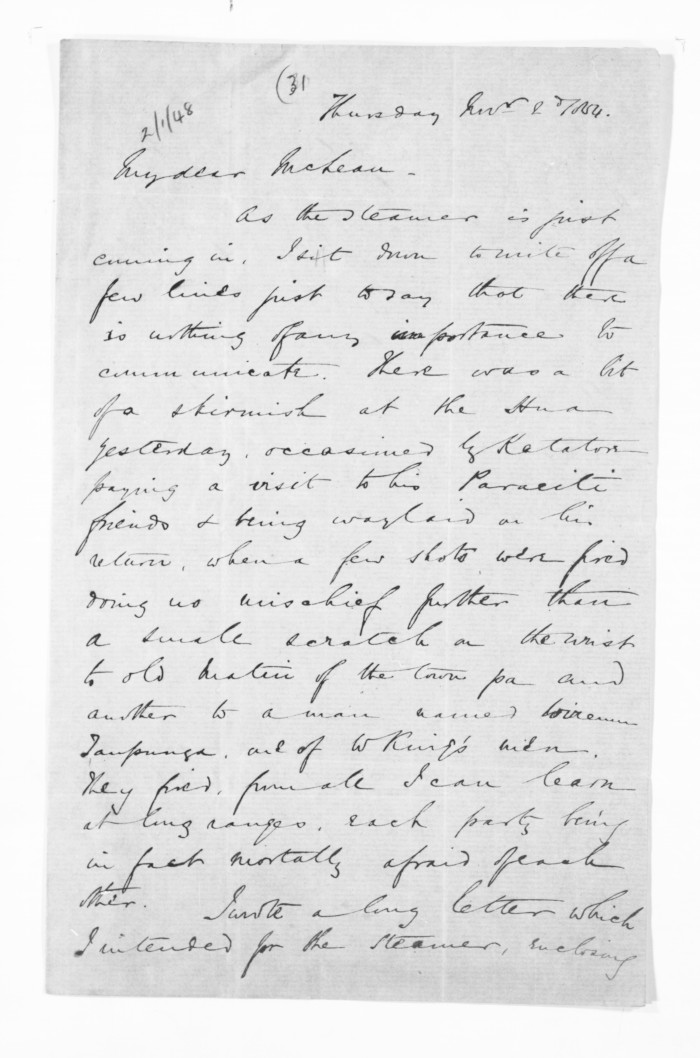 (31
2/1/48
Thursday Novr 2d/1854.
My dear McLean -
As the steamer is just
coming in, I sit down to write off a
few lines just to say that there
is nothing of any importance to
communicate. There was a bit
of a skirmish at the Hua
yesterday, occasioned by Katatore
paying a visit to his Paraiti
friends & being waylaid on his
return, when a few shots were fired
doing no mischief further than
a small scratch on the wrist
to old Matiu of the town pa and
another to a man named Wiremu
Taupunga, one of W King's men.
They fired, from all I can learn
at long ranges, each party being
in fact mortally afraid of each
other.
I wrote a long letter which
I intended for the steamer, enclosing